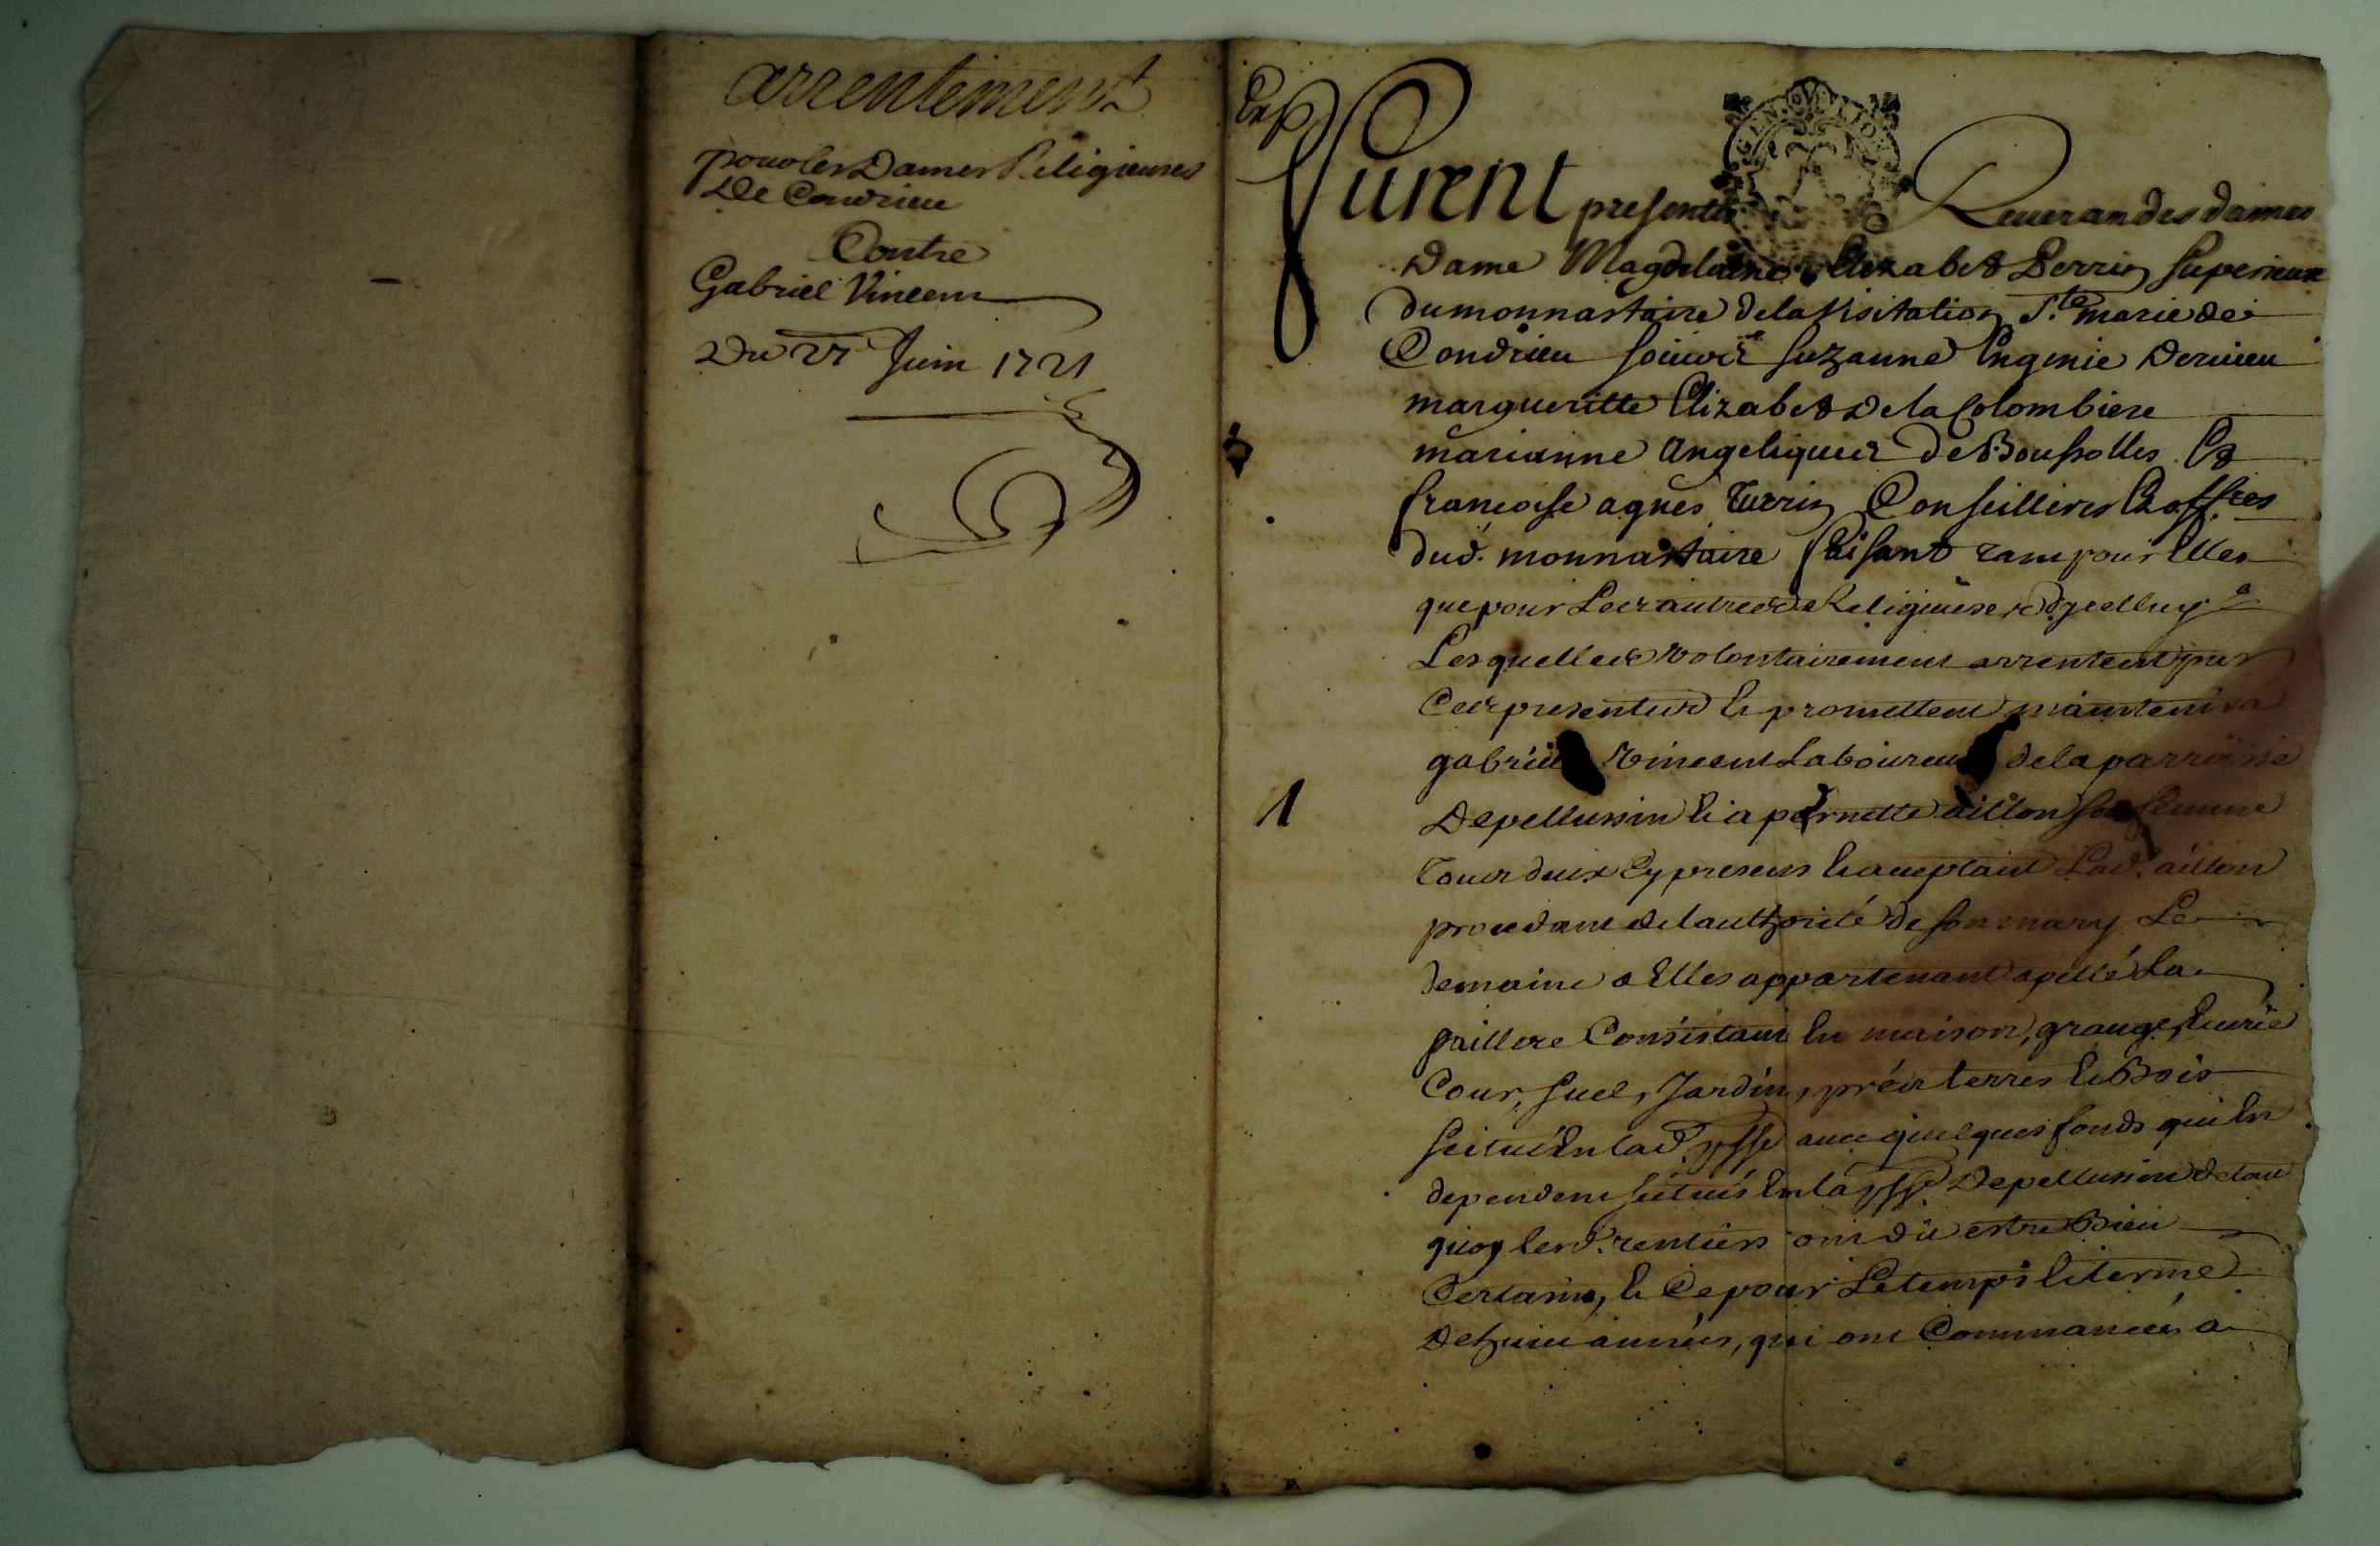 arrentement
pour les Dames Religieuses
De Condrieu
Contre
Gabriel Vincent
Du 27 Juin 1721
Exp
Furent presentes Reuerandes dames
Dame Magdelaine Elizabet Perrin Superieure
du monnastaire de la Visitation Ste marie de
Condrieu soeurs Suzanne Eugenie Deruieu
margueritte Elizabet De la Colombiere
marianne angelique De Boussolles Et
francoise agnes Terrin Conseilliers
dud. monnastaire faisant tant pour Elles
que pour Les autres Religieuses dycelluy
Lesquelles volontairement arrentent par
Ces presentes Et promettent maintenir a
gabriel Vincent Laboureur de la parroisse
De pellussin Et a pernette aillon sa femme
Tous deux Cy presens Et acceptant Lad. aillon
procedant de l'authorité de son mary Le
domaine a Elles appartenant apellé La
paillere Consistant En maison, grange, Ecurie
Cour, suel, Jardin, prés terres Et Bois
scitués En lad. psse auec quelques fonds qui En
dependent scitués En la psse De pellussin de tout
quoy lesd. rentiers ont dit estre Bien
Certains, Et Ce pour Le temps Et terme
De huict années, qui ont Commancées a
1